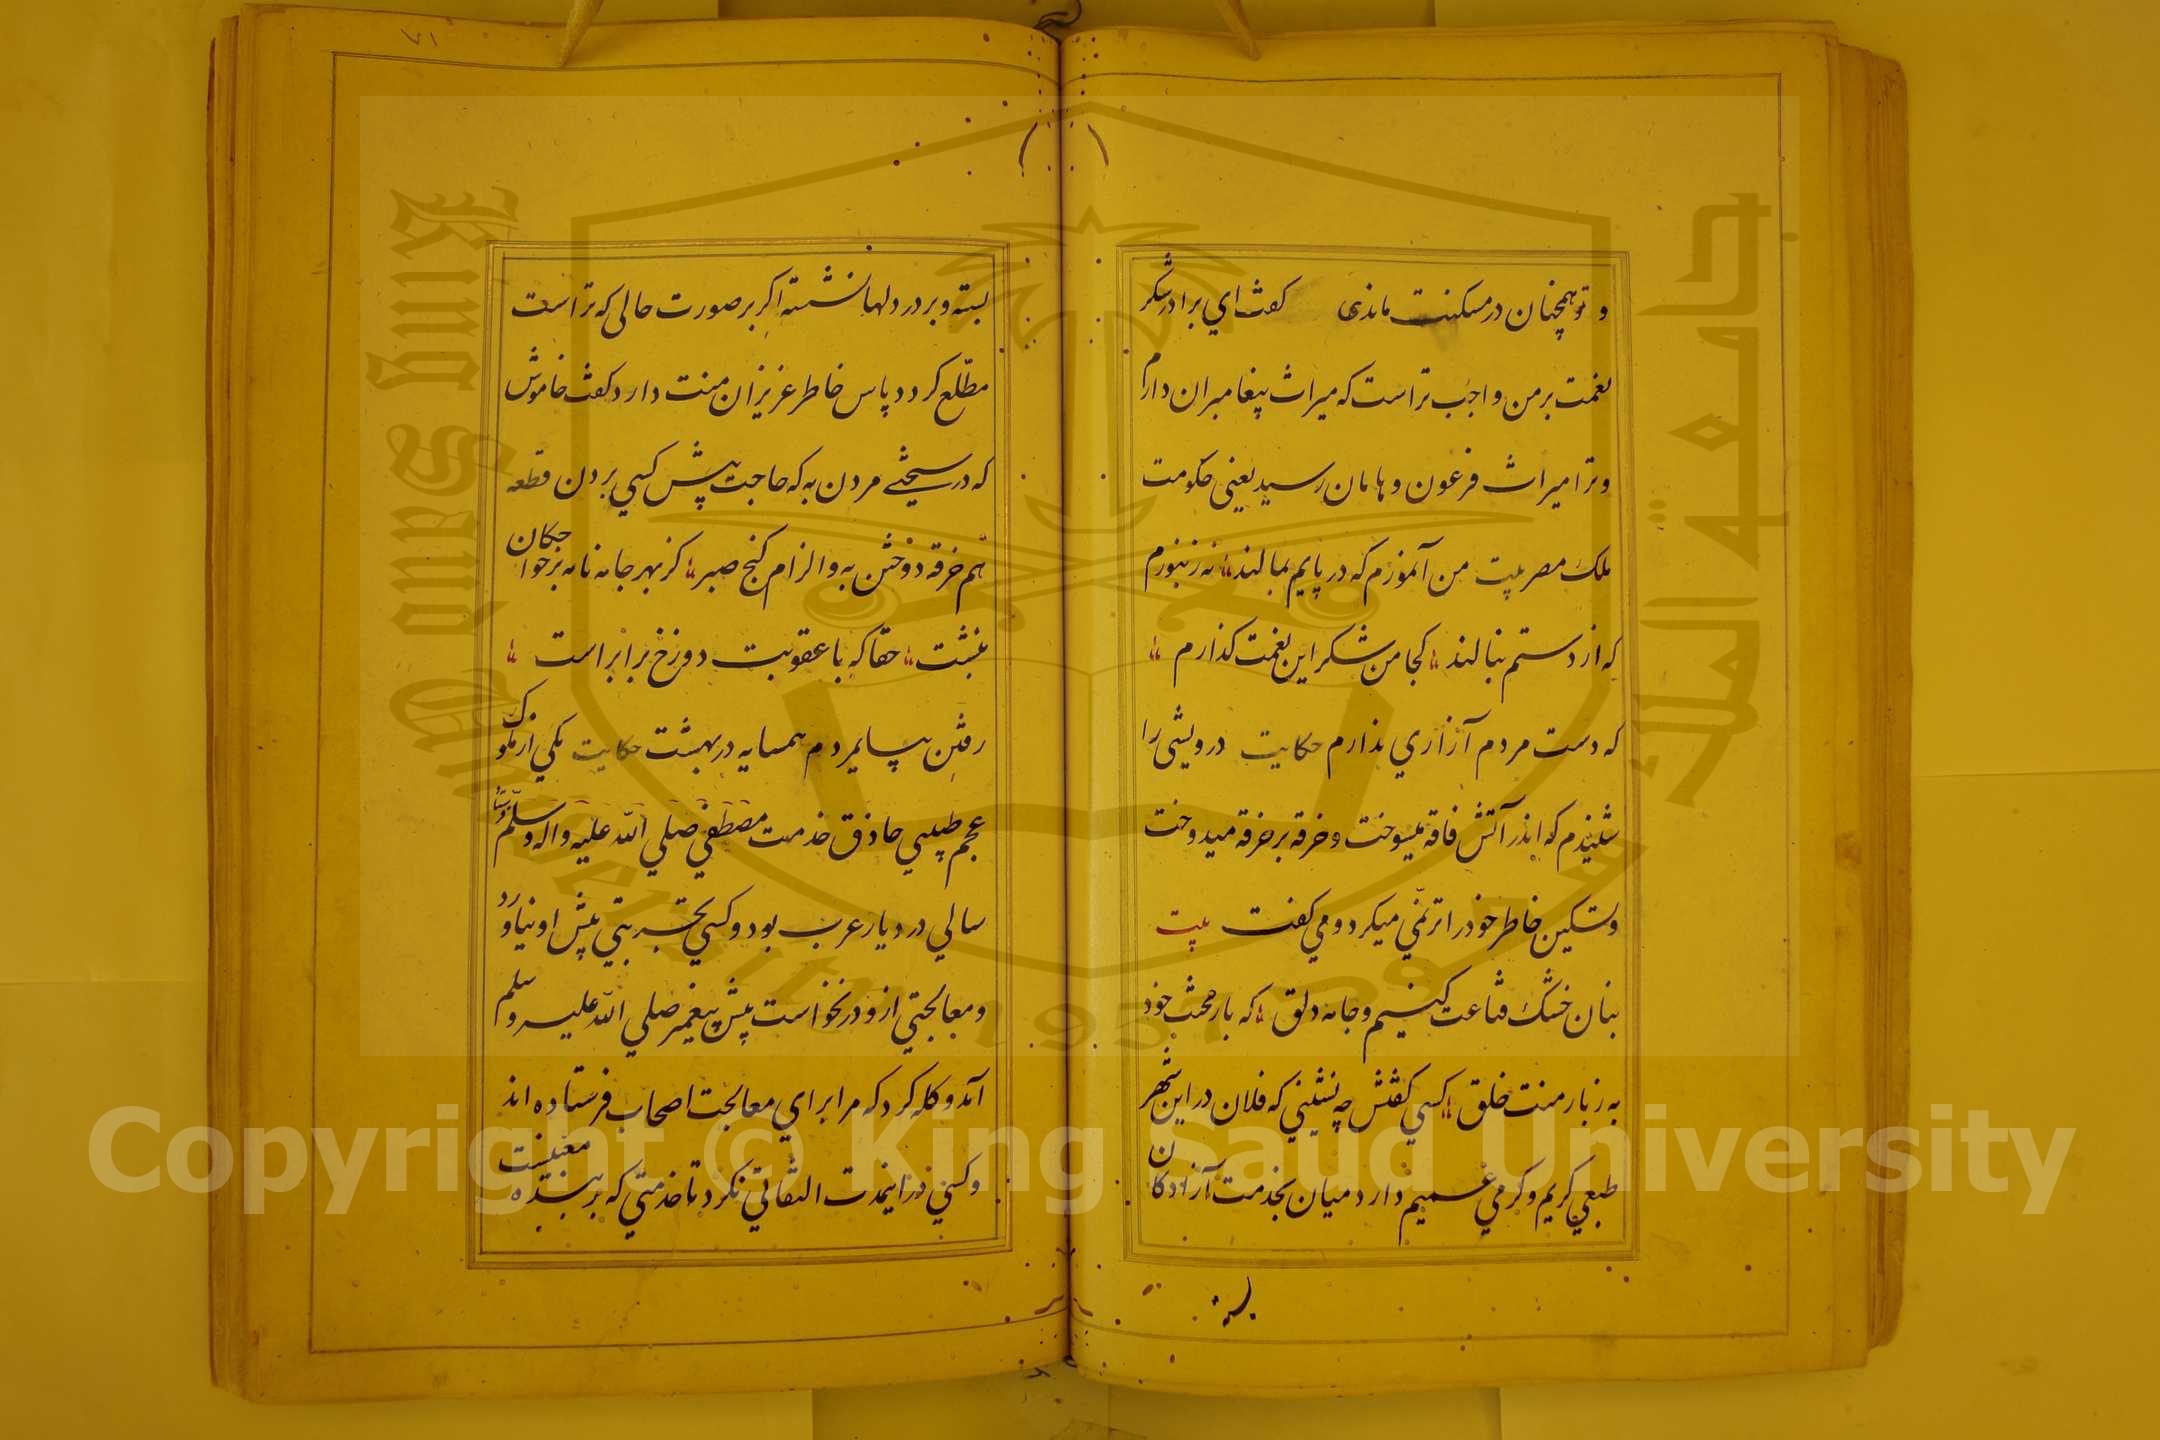 و تو همچنان در مسکنت ماندی کفت ای برادر شکر
نعمت بر من واجب تر است که میراث پیغامبران دارم
و ترا میراث فرعون و هامان رسید یعنی حکومت
ملک مصر بیت من آن مورم که در پایم بمالند نه زنبورم
که از دستم بنالند کجا من شکر این نعمت کذارم
که دست مردم آزاری ندارم حکایت درویشی را
شنیدم که اندر آتش فاقه میسوخت و خرقه بر خرقه میدوخت
و تسکین خاطر خود را ترنمی میکرد و می کفت بیت
بنان خشک قناعت کنیم و جامه دلق که بار محنت خود
به ز بار منت خلق کسی کفتش چه نشینی که فلان در این شهر
طبعی کریم و کرمی عمیم دارد میان بخدمت آزادکان
بسته
۷۱
بسته و بر در دلها نشسته اکر بر صورت حالی که تراست
مطلع کردد پاس خاطر عزیزان منت دارد کفت خاموش
که در سختی مردن به که حاجت پیش کسی بردن قطعه
هم خرقه دوختن به و الزام کنج صبر کز بهر جامه نامه بر خواجکان
نبشت حقا که با عقوبت دوزخ برابر است
رفتن بپایمردم همسایه در بهشت حکایت یکی از ملوک
عجم طبیبی حاذق خدمت مصطفی صلی الله علیه و اله و سلم فرستاد
سالی در دیار عرب بود و کسی بتجربتی پیش او نیاورد
و معالجتی ازو در نخواست پیش پیغمبر صلی الله علیه و سلم
آمد و کله کرد که مرا برای معالجت اصحاب فرستاده اند
و کسی در اینمدت التفاتی نکرد تا خدمتی که بر بنده معینست
King Saud University
جامعة الملك سعود
1957
Copyright © King Saud University